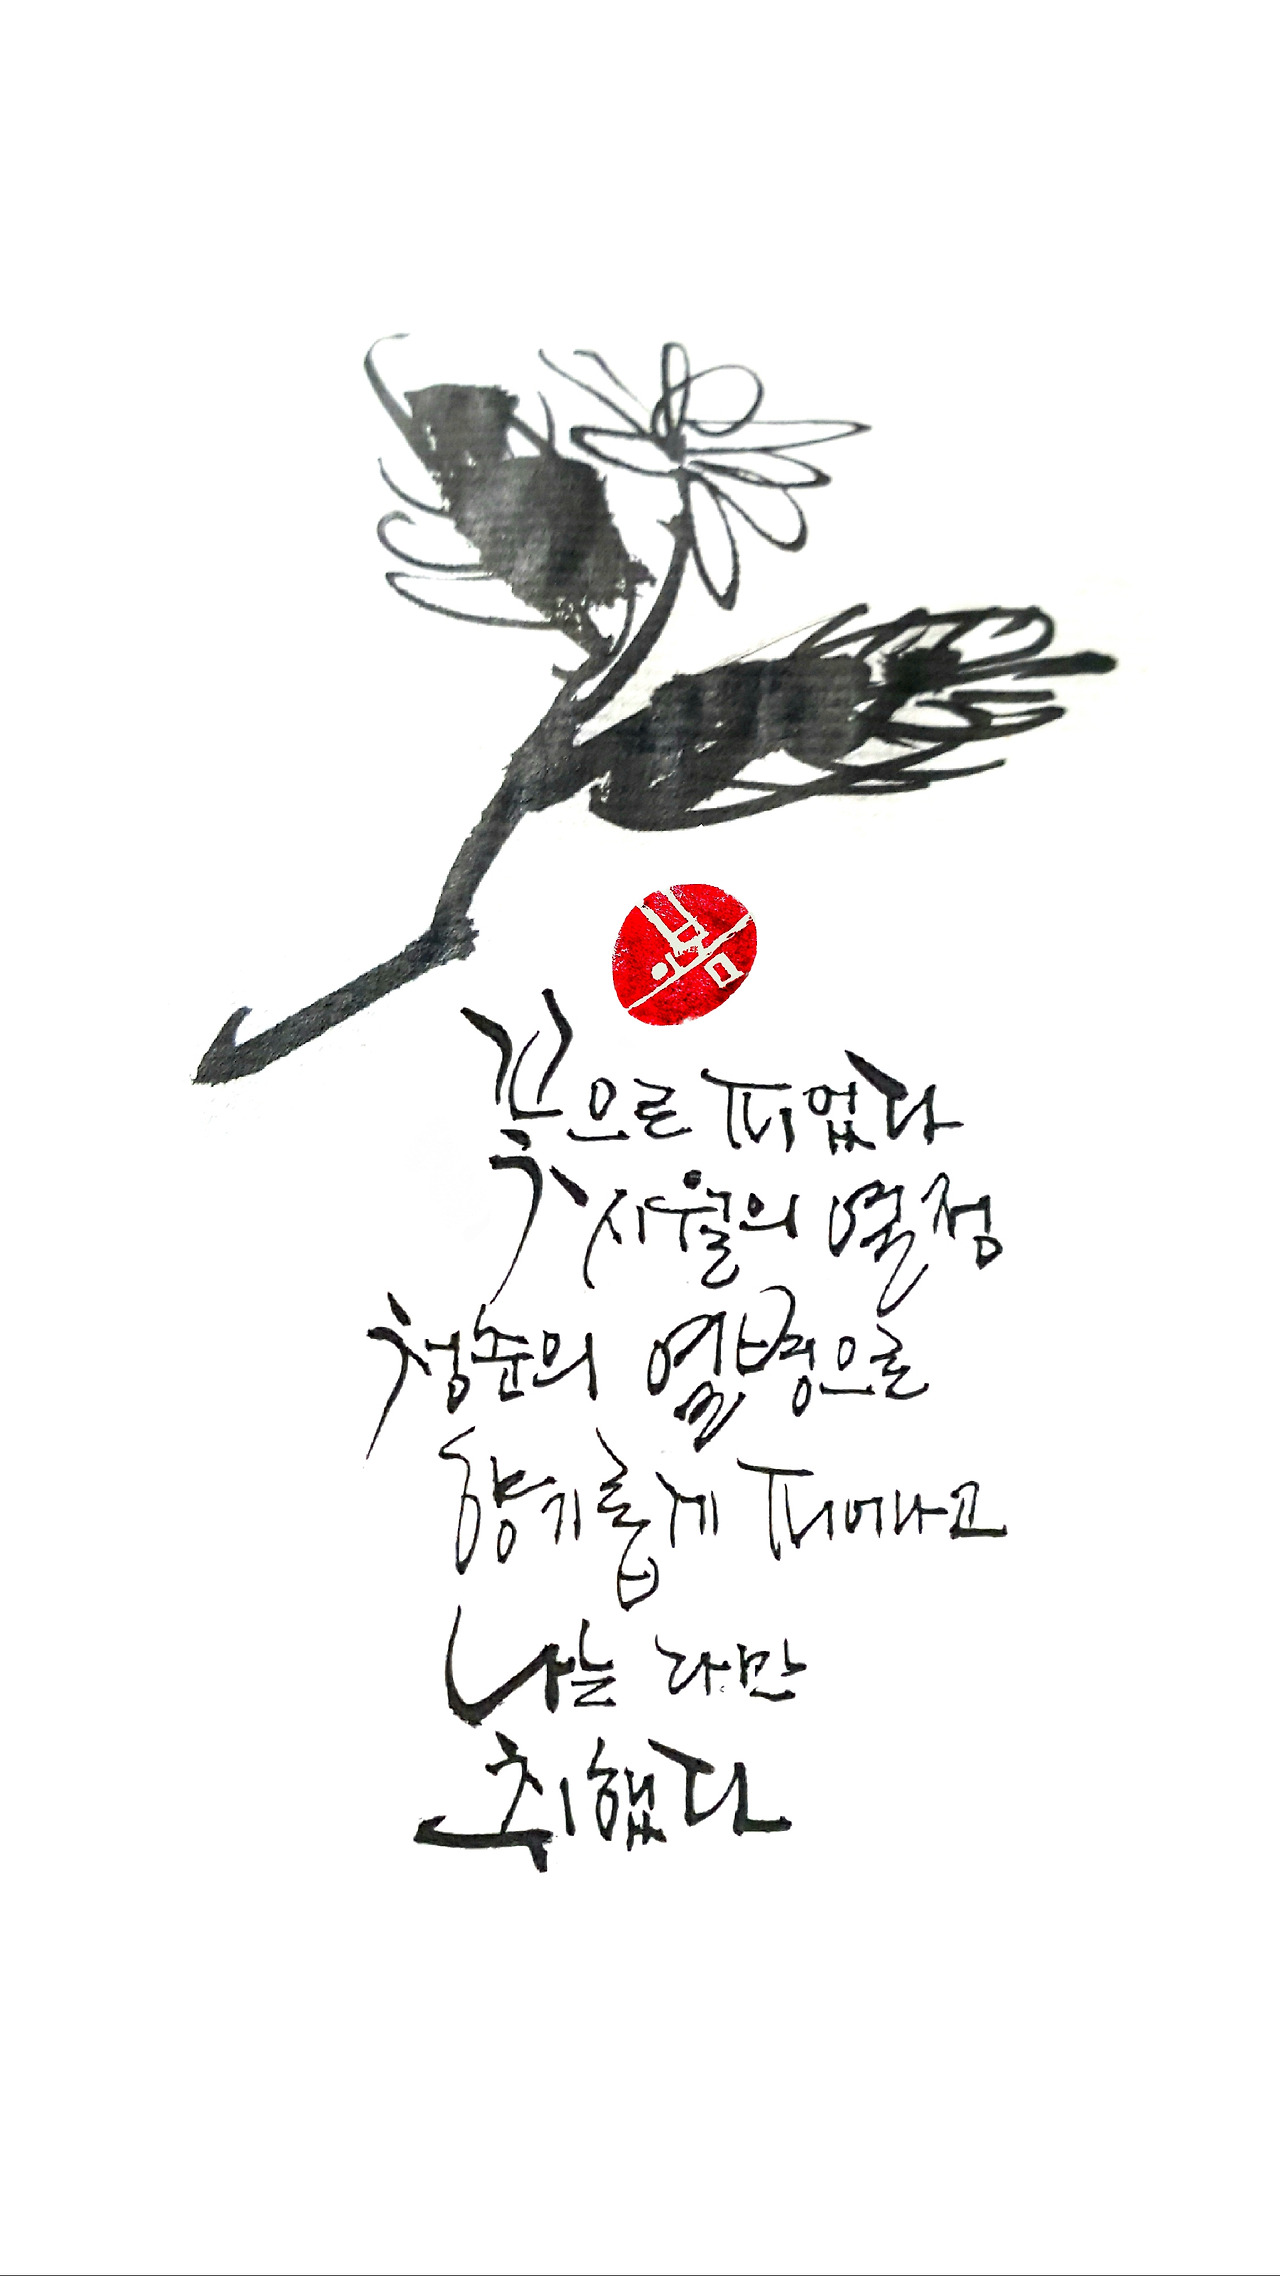 꽃으로 피었다
시월의 열정
청춘의 열병으로
향기롭게 피어나고
나는 다만
취했다